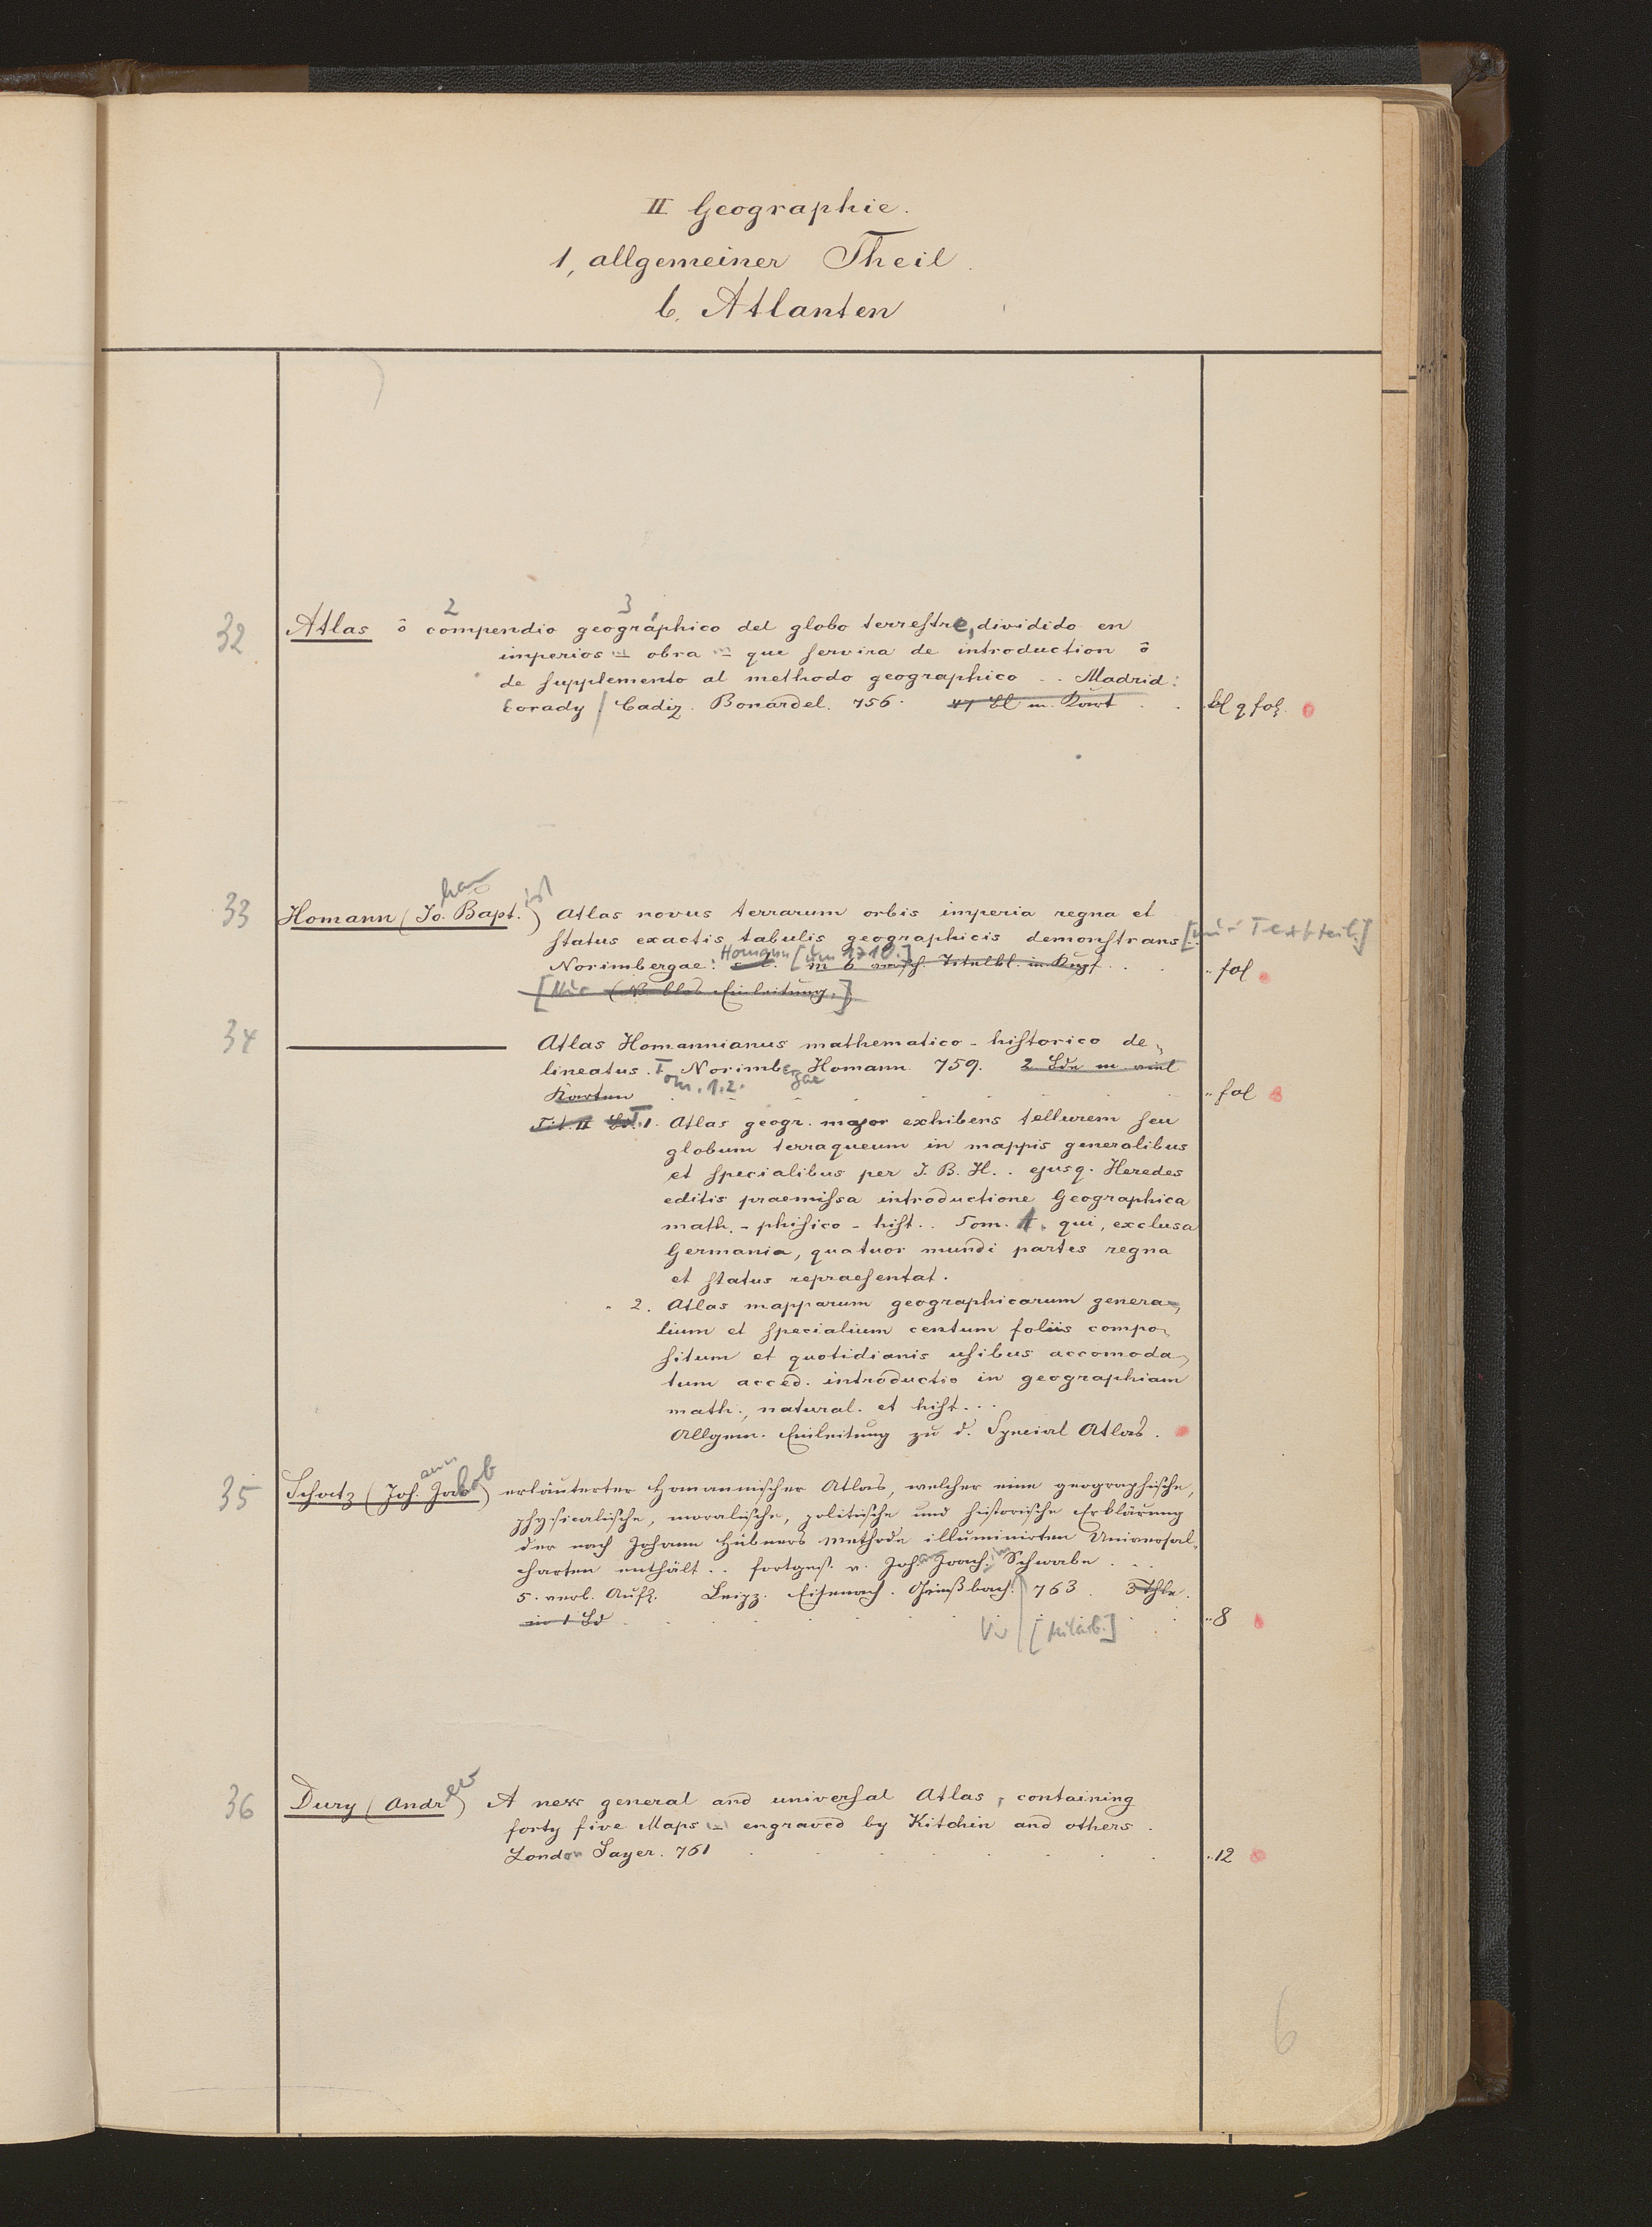 II Geographie.
1, allgemeiner Theil.
b. Atlanten
2 3
32 Atlas ô compendio geográphico del globo terrestre, dividido en
imperios = obra = que servira de introduction ô
de supplemento al methodo geographico .. Madrid:
Corady / Cadiz. Bonardel. 756. 47 Bl m. Kart . . kl q fol.
33 Homann (Jo.han Bapt.ist) Atlas novus terrarum orbis imperia regna et
status exactis tabulis geographicis demonstrans [nur Textteil.]
Norimbergae: Homann [um 1710.] m 6 Titelbl. in Kupf. . . " fol
[Nur (NB blos Einleitung.)]
34 ——— Atlas Homannianus mathematico-historico de-
lineatus. Tom. 1.2. Norimbergae Homann. 759. 2 Bde m. viel
Karten . . . " fol
Tit. II Bd. T. 1. Atlas geogr. major exhibens tellurem seu
globum terraqueum in mappis generalibus
et specialibus per J. B. H. . ejusq. Heredes
editis praemissa introductione Geographica
math. - phisico - hist.. Tom. 1. qui, exclusa
Germania, quatuor mundi partes regna
et status repraesentat.
" 2. Atlas mapparum geographicarum genera-
lium et specialium centum foliis compo-
situm et quotidianis usibus accomoda-
tum acced. introductio in geographiam
math., natural. et hist...
Allgem. Einleitung zu d. Special Atlas.
35 Schatz (Joh.ann Jakob) erläuterter Homannischer Atlas, welcher eine geographische,
physicalische, moralische, politische und historische Erklärung
der nach Johann Hübners Methode illuminirten Universal-
charten enthält .. fortges. v. Joh.ann Joach.im Schwabe . . .
5. verb. Aufl. Leipz. Eisenach. Griesbach. | 763. 3 Thle.
in 1 Bd . . . [Mitarb.] " 8
36 Dury (Andrew) A new general and universal Atlas, containing
forty five Maps = engraved by Kitchin and others.
London Sayer. 761 . . . " 12
6